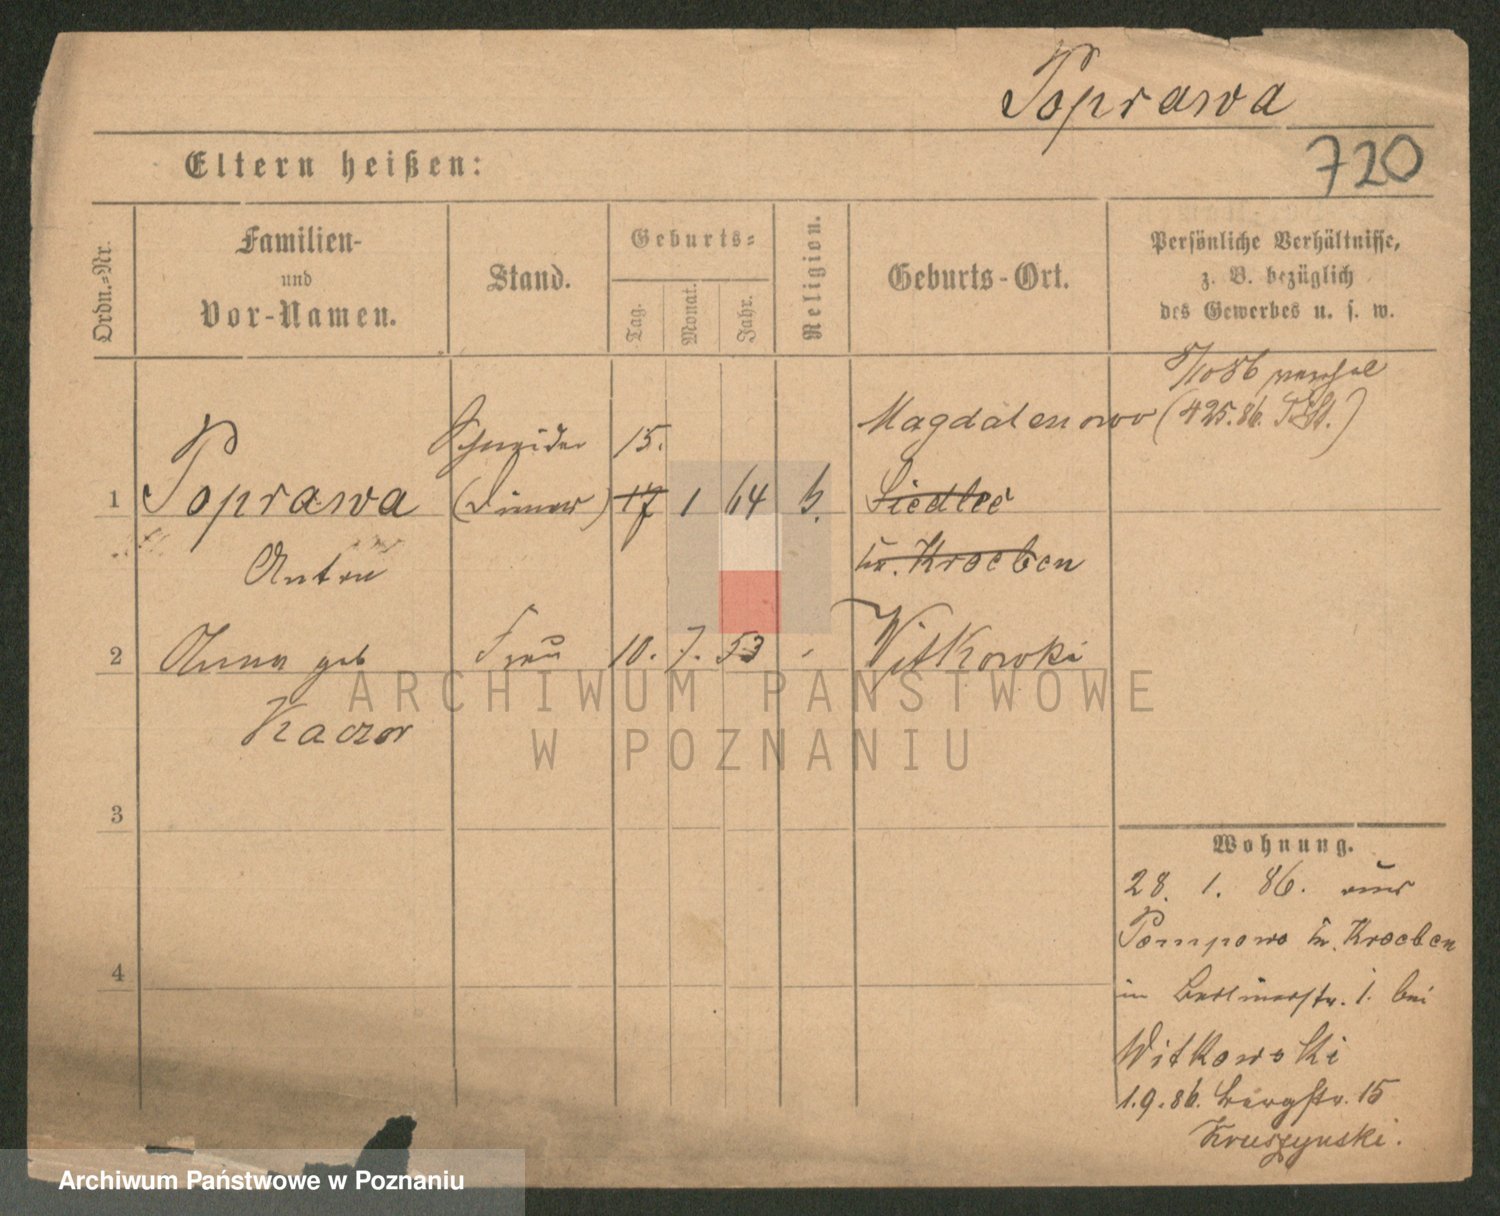 Poprawa
720
Eltern heißen:
Ordn.-Nr.
Familien-
und
Vor-Namen.
Stand.
Geburts-
Tag.
Monat.
Jahr.
Religion.
Geburts-Ort.
Persönliche Verhältnisse,
z. B. bezüglich
des Gewerbes u. s. w.
8/10 86
Magdalenowo (425.86.
Schneider 15.
1 Poprawa (Diener) 17 1 64 k. Siedlec
Anton Kr. Kroeben
2 Anna geb Frau 10. 7. 53 Witkowski
Kaczor
3
4
Wohnung.
28. 1. 86. aus
Pompowo Kr. Kroeben
in Berlinerstr. 1. bei
Witkowski
1.9.86. Bergstr. 15
Kruszynski.
ARCHIWUM PAŃSTWOWE
W POZNANIU
Archiwum Państwowe w Poznaniu